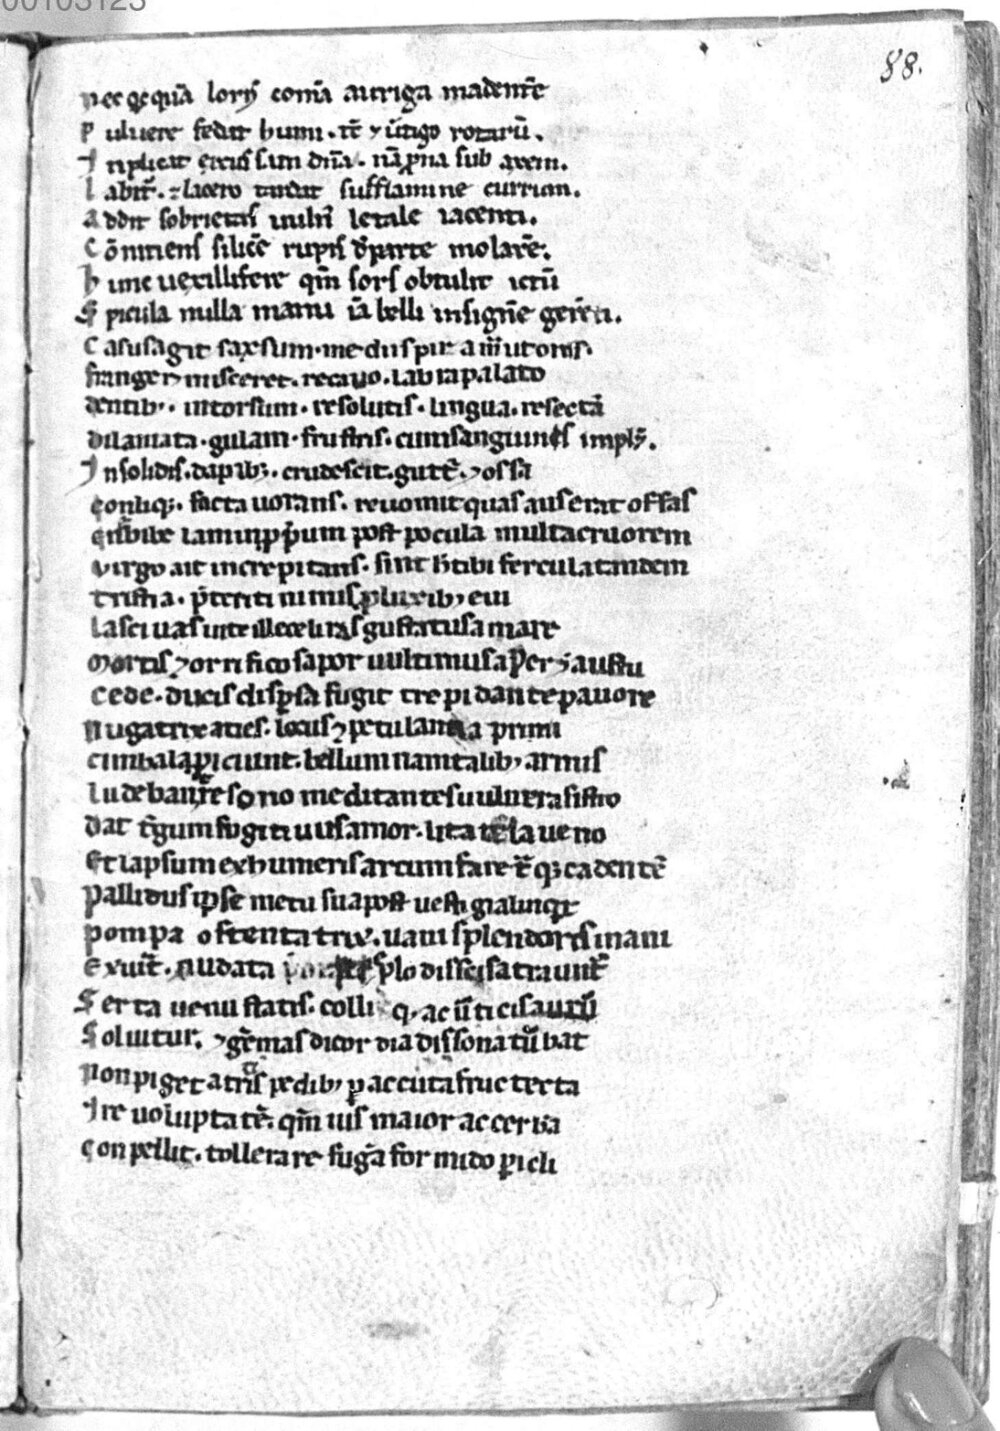 00103123
88.
nec q̨cquā loris comā auriga madentē
Puluere fedat humi. tē ⁊ ūtigo rotarū.
Inplicat exc̨ussam dn̄a. nā ꝓna sub axem.
labit̄. ⁊ lacero tardat sufflamine currum.
Addit sobrietas uuln̄ letale iacenti.
Cōniciens silicē rupis d̄ parte molarē.
hunc uexillifere qm̄ sors obtulit ictū
Spicula nulla manu iā belli insignē gerēti.
Casus agit saxsum. medii spir
frangeret misceret. recauo. labra palato
dentib;. introrsum. resolutis. lingua. resectā
dilaniata. gulam. frustris. cum sanguineis impl&.
Insolidis. dapib;. crudescit. guttē. ⁊ ossa
conliq;. facta uorans. reuomit quas auserat offas
bibe iam ꝓprium post pocula multa cruorem
uirgo ait increpitans. sint h̄ tibi fercula tandem
tristia. p̄teriti nimis ꝓ luxib; eui
lasciuas uite illecebras gustatus amare
mortis ⁊ orrifico sapor uultimus asꝑ& austu
Cede. ducis disp̄sa fugit trepidante pauore
nugatrix acies. iocus ⁊ petulantia primi
cimbala ꝓiciunt. bellum nam talib; armis
ludebant resono meditantes uulnera sistro
dat t̄gum fugitiuus amor. lita tela ueno
Et lapsum ex humeris arcum faretā q; cadentē
Pallidus ipse metu sua post uestigia linquit
pompa ostentatrix. uani splendoris inani
exuit̄. nudata ꝑlo discisa traunt̄
Serta uenustatis. colliq. ac ūticis aurū
Soluitur; ⁊ gēmas discordia dissona tūbat
non piget atritis pedib; ꝑ accuta fructecta
Ire uoluptatē. qm̄ uis maior accerba
conpellit. tollerare fugā formido ꝑicli